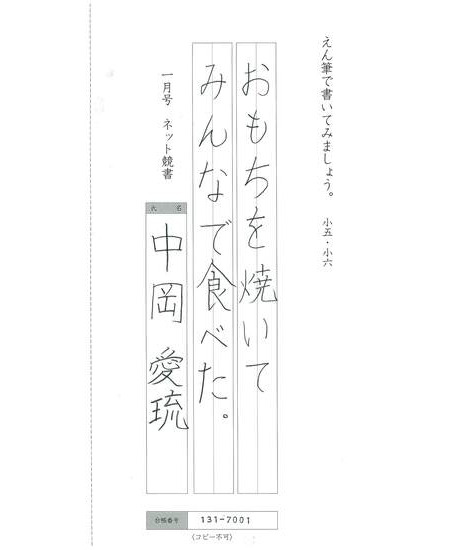 えん筆で書いてみましょう。 小五・小六
おもちを焼いて
みんなで食べた。
一月号 ネット競書
氏名
中岡 愛琉
台帳番号 131-7001
(コピー不可)